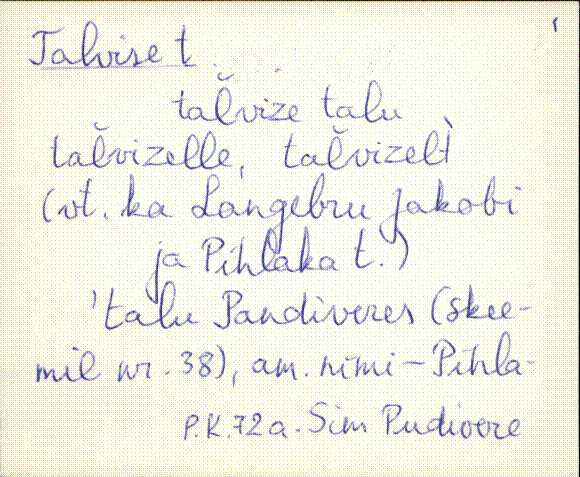 Talvise t.
talˇvize talu
talˇvizelle, talˇvizelt̀
(vt. ka Langebru Jakobi
ja Pihlaka t.)
'talu Pandiveres (skee-
mil nr. 38), am. nimi – Pihla-
P.K. 72 a. Sim Pudivere